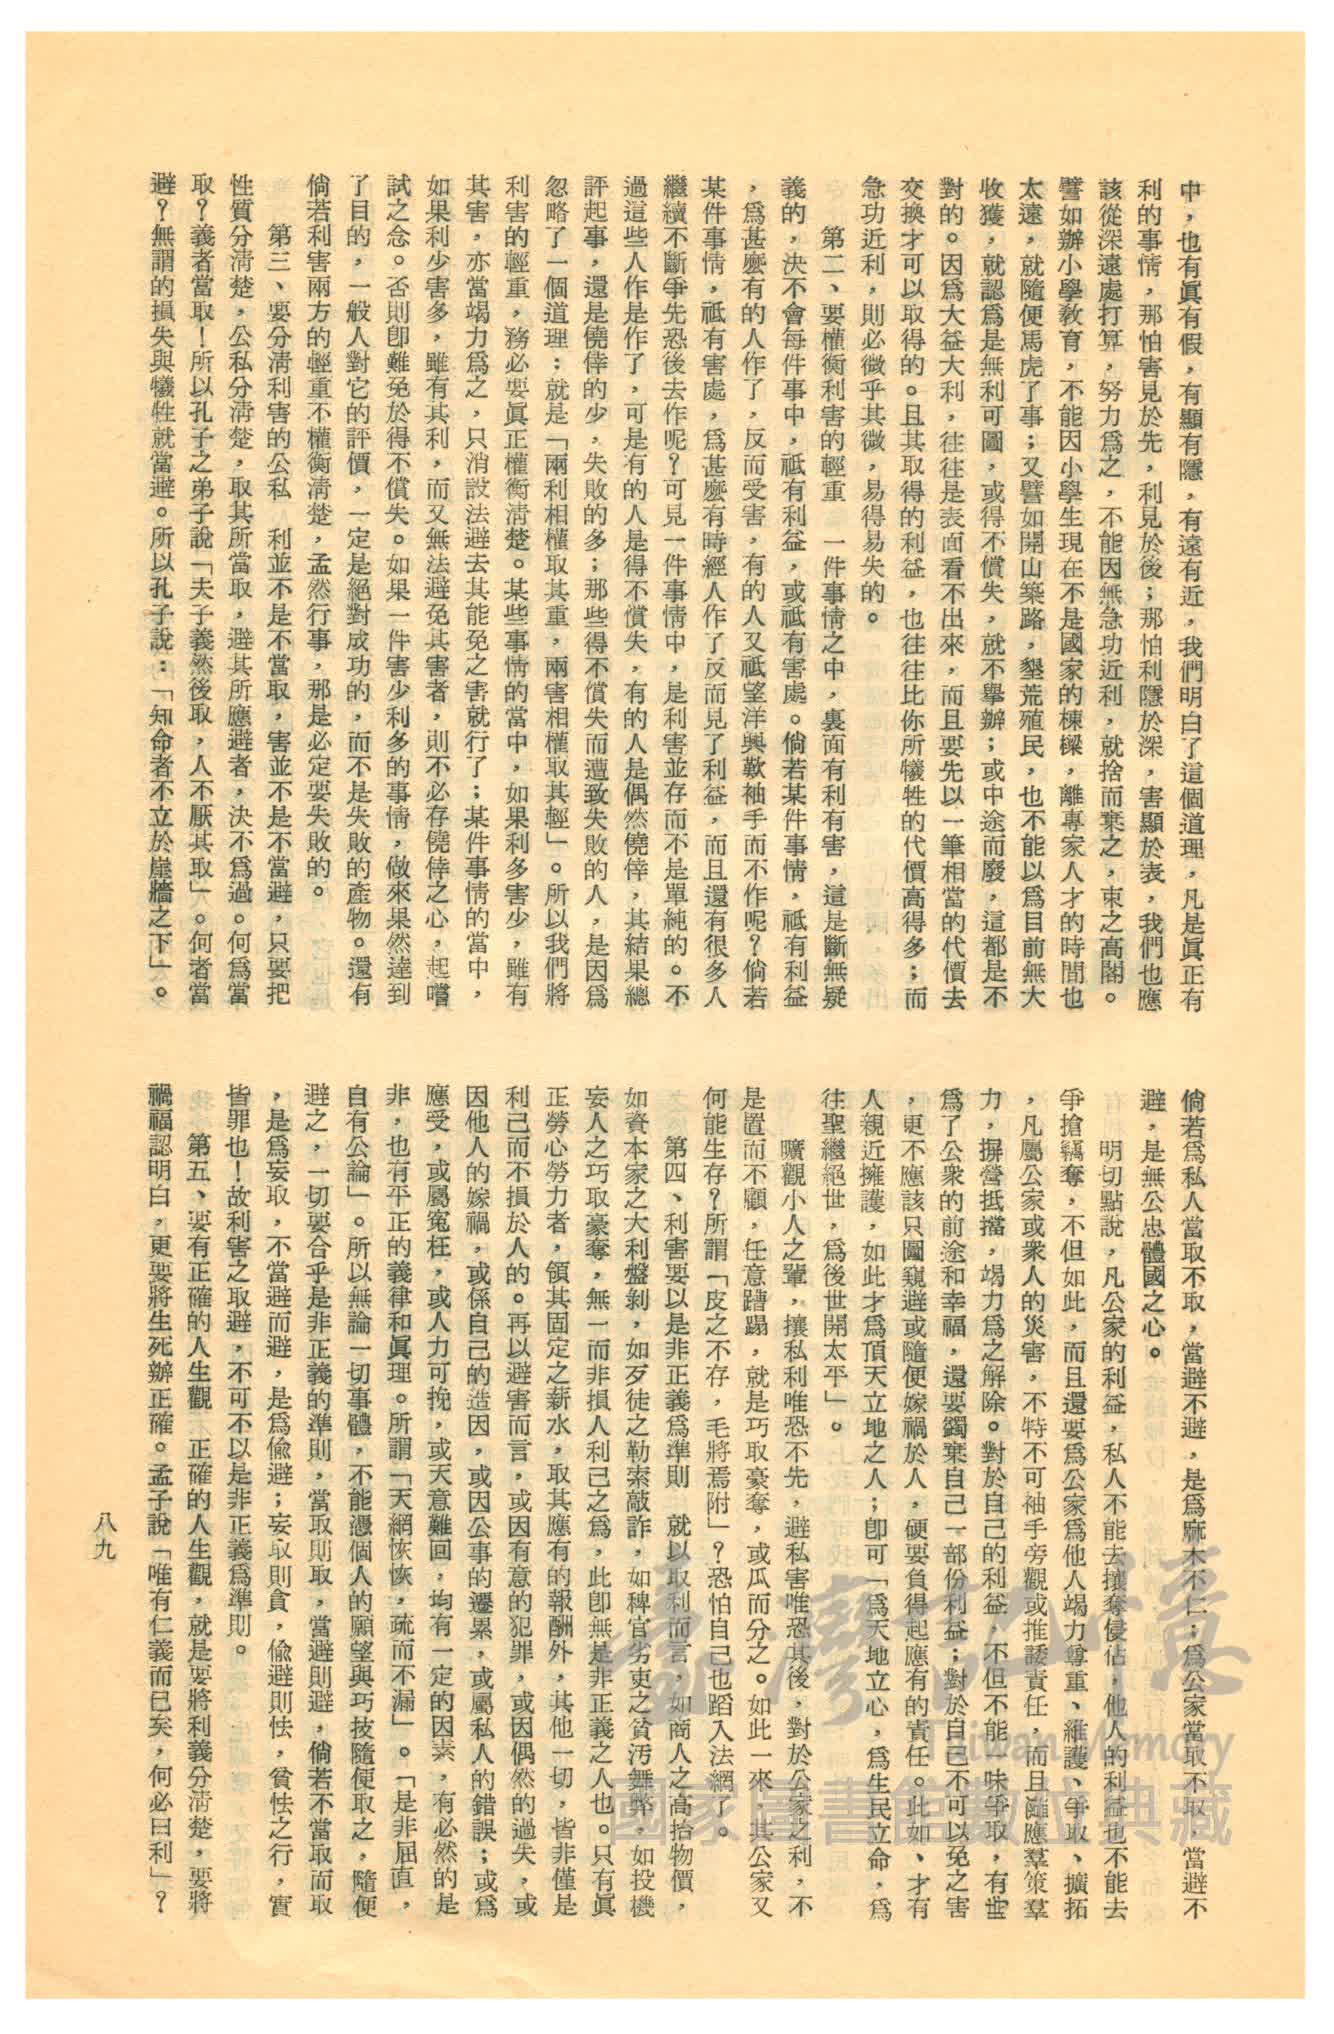 中，也有眞有假，有顯有隱，有遠有近，我們明白了這個道理，凡是眞正有
利的事情，那怕害見於先，利見於後；那怕利隱於深，害顯於表，我們也應
該從深遠處打算，努力爲之，不能因無急功近利，就捨而棄之，束之高閣。
譬如辦小學教育，不能因小學生現在不是國家的棟樑，離專家人才的時間也
太遠，就隨便馬虎了事；又譬如開山築路，墾荒殖民，也不能以爲目前無大
收獲，就認爲是無利可圖，或得不償失，就不舉辦；或中途而廢，這都是不
對的。因爲大益大利，往往是表面看不出來，而且要先以一筆相當的代價去
交換才可以取得的。且其取得的利益，也往往比你所犧牲的代價高得多；而
急功近利，則必微乎其微，易得易失的。
第二、要權衡利害的輕重　一件事情之中，裏面有利有害，這是斷無疑
義的，決不會每件事中，祗有利益，或祗有害處。倘若某件事情，祗有利益
，爲甚麼有的人作了，反而受害，有的人又祗望洋興歎袖手而不作呢？倘若
某件事情，祗有害處，爲甚麼有時經人作了反而見了利益，而且還有很多人
繼續不斷爭先恐後去作呢？可見一件事情中，是利害並存而不是單純的。不
過這些人作是作了，可是有的人是得不償失，有的人是偶然僥倖，其結果總
評起事，還是僥倖的少，失敗的多；那些得不償失而遭致失敗的人，是因爲
忽略了一個道理；就是「兩利相權取其重，兩害相權取其輕」。所以我們將
利害的輕重，務必要眞正權衡淸楚。某些事情的當中，如果利多害少，雖有
其害，亦當竭力爲之，只消設法避去其能免之害就行了；某件事情的當中，
如果利少害多，雖有其利，而又無法避免其害者，則不必存僥倖之心，起嚐
試之念。否則卽難免於得不償失。如果一件害少利多的事情，做來果然達到
了目的，一般人對它的評價，一定是絕對成功的，而不是失敗的產物。還有
倘若利害兩方的輕重不權衡淸楚，孟然行事，那是必定要失敗的。
第三、要分淸利害的公私　利並不是不當取，害並不是不當避，只要把
性質分淸楚，公私分淸楚，取其所當取，避其所應避者，決不爲過。何爲當
取？義者當取！所以孔子之弟子說「夫子義然後取，人不厭其取」。何者當
避？無謂的損失與犧牲就當避。所以孔子說：「知命者不立於崖牆之下」。
倘若爲私人當取不取，當避不避，是爲麻木不仁；爲公家當取不取，當避不
避，是無公忠體國之心。
明切點說，凡公家的利益，私人不能去攘奪侵佔，他人的利益也不能去
爭搶竊奪，不但如此，而且還要爲公家爲他人竭力尊重、維護、爭取、擴拓
，凡屬公家或衆人的災害，不特不可袖手旁觀或推諉責任，而且應羣策羣
力，摒營抵擋，竭力爲之解除。對於自己的利益，不但不能一味爭取，有時
爲了公衆的前途和幸福，還要蠲棄自己一部份利益；對於自己不可以免之害
，更不應該只圖窺避或隨便嫁禍於人，硬要負得起應有的責任。此如、才有
人親近擁護，如此才爲頂天立地之人；卽可「爲天地立心，爲生民立命，爲
往聖繼絕世，爲後世開太平」。
曠觀小人之輩，攘私利唯恐不先，避私害唯恐其後，對於公家之利，不
是置而不顧，任意蹧蹋，就是巧取豪奪，或瓜而分之。如此一來，其公家又
何能生存？所謂「皮之不存，毛將焉附」？恐怕自己也蹈入法網了。
第四、利害要以是非正義爲準則　就以取利而言，如商人之高抬物價，
如資本家之大利盤剝，如歹徒之勒索敲詐，如稗官劣吏之貧汚舞弊，如投機
妄人之巧取豪奪，無一而非損人利己之爲，此卽無是非正義之人也。只有眞
正勞心勞力者，領其固定之薪水，取其應有的報酬外，其他一切，皆非僅是
利己而不損於人的。再以避害而言，或因有意的犯罪，或因偶然的過失，或
因他人的嫁禍，或係自己的造因，或因公事的遷累，或屬私人的錯誤；或爲
應受，或屬冤枉，或人力可挽，或天意難回，均有一定的因素，有必然的是
非，也有平正的義律和眞理。所謂「天網恢恢，疏而不漏」。「是非屈直，
自有公論」。所以無論一切事體，不能憑個人的願望與巧技隨便取之，隨便
避之，一切要合乎是非正義的準則，當取則取，當避則避，倘若不當取而取
，是爲妄取，不當避而避，是爲偸避；妄取則貪，偸避則怯，貧怯之行，實
皆罪也！故利害之取避，不可不以是非正義爲準則。
第五、要有正確的人生觀　正確的人生觀，就是要將利義分淸楚，要將
禍福認明白，更要將生死辦正確。孟子說「唯有仁義而已矣，何必曰利」？
八九
臺灣記憶
Taiwan Memory
國家圖書館數位典藏